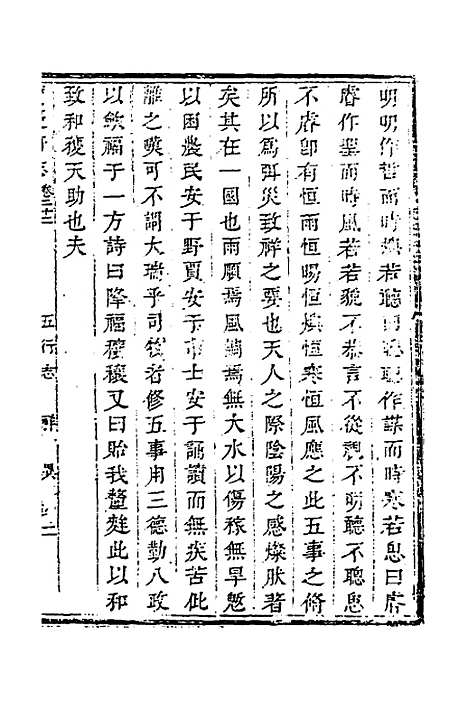 明明作哲而時燠若聽曰聰聰作謀而時寒若思曰睿
睿作聖而時風若若貌不恭言不從視不明聽不聰思
不睿卽有恒雨恒暘恒燠恒寒恒風應之此五事之脩
所以爲弭災致祥之要也天人之際陰陽之感燦肰著
矣其在一國也雨順焉風調焉無大水以傷稼無旱魃
以困農民安于野賈安于市士安于誦讀而無疾苦此
雖之嘆可不謂大瑞乎司牧者修五事用三德勤八政
以斂福于一方詩曰降福穰穰又曰貽我釐麰此以和
致和獲天助也夫
卷三十二 五行志 祥異